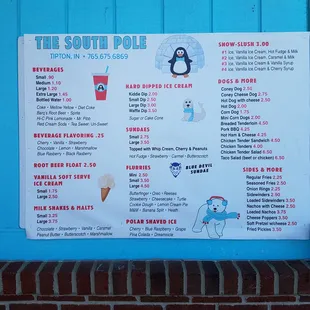 THE SOUTH POLE
TIPTON, IN • 765.675.6869
BEVERAGES
Small .90
Medium 1.10
Large 1.20
Extra Large 1.60
Bottled Water 1.00
Coke ~ Mellow Yellow ~ Diet Coke
Barq's Root Beer ~ Sprite
Hi-C Pink Lemonade ~ Mr. Pibb
Red Cream Soda ~ Tea (sweet - un-sweet)
BEVERAGE FLAVORING .25
Cherry ~ Vanilla ~ Strawberry
Chocolate ~ Lemon ~ Marshmallow
Blue Raspberry ~ Black Raspberry
ROOT BEER FLOAT 2.50
VANILLA SOFT SERVE
ICE CREAM
Small 1.75
Large 2.50
MILK SHAKES & MALTS
Small 3.25
Large 3.75
Chocolate ~ Strawberry ~ Vanilla ~ Caramel
Peanut Butter ~ Butterscotch ~ Marshmallow
HARD DIPPED ICE CREAM
Kiddie Dip
Small Dip
Large Dip
Waffle Dip
Sugar or Cake Cone
SUNDAES
Small 2.75
Large 3.50
Topped with Whip Cream, Cherry & Peanuts
Hot Fudge ~ Strawberry ~ Carmel ~ Butterscotch
FLURRIES
Mini 2.50
Small 3.50
Large 4.50
Butterfinger ~ Oreo ~ Reeses
Strawberry ~ Cheesecake ~ Turtle
Cookie Dough ~ Lemon Cream Pie
M&M ~ Banana Split ~ Heath
POLAR SHAVED ICE
Cherry ~ Blue Raspberry ~ Grape
Pina Colada ~ Dreamsicle
BLUE DEVIL
SUNDAE
SNOW-SLUSH 3.00
#1 Ice, Vanilla Ice Cream, Hot Fudge & Milk
#2 Ice, Vanilla Ice Cream, Caramel & Milk
#3 Ice, Vanilla Ice Cream & Vanilla Syrup
#4 Ice, Vanilla Ice Cream & Cherry Syrup
DOGS & MORE
Coney Dog
Coney Cheese Dog
Hot Dog with cheese
Hot Dog
Corn Dog
Mini Corn Dogs
Breaded Tenderloin
Pork BBQ
Hot Ham & Cheese
Chicken Tender Sandwich
Chicken Tenders
Chicken Tender Salad
Taco Salad (beef or chicken)
SIDES & MORE
Regular Fries
Seasoned Fries
Onion Rings
Sidewinders
Loaded Sidewinders
Nachos with Cheese
Loaded Nachos
Cheese Poppers
Soft Pretzel with Cheese
Fried Pickles